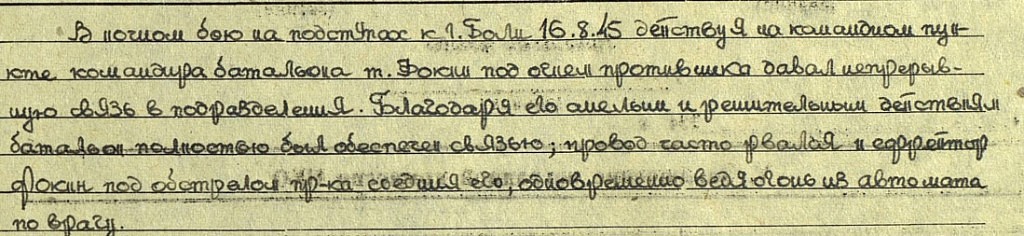 В ночном бою на подступах к г. Боли 16.8.45 действуя на командном пун-
кте командира батальона т. Фокин под огнем противника давал непрерыв-
ную связь в подразделения. Благодаря его смелым и решительным действиям
батальон полностью был обеспечен связью; провод часто рвался и ефрейтор
Фокин под обстрелом пр-ка соединял его, одновременно ведя огонь из автомата
по врагу.